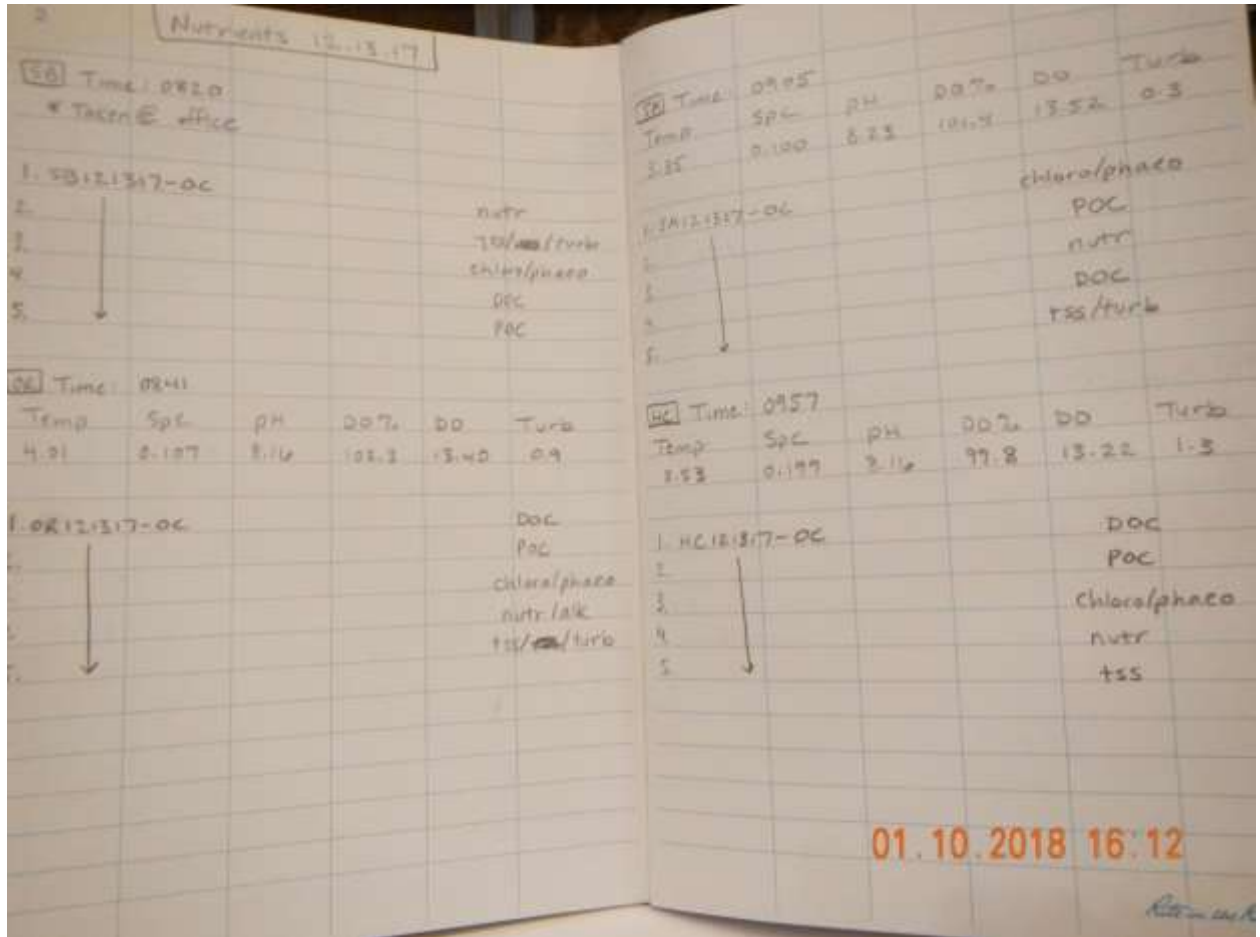 2
Nutrients 12.13.17
SB Time: 0820
* Taken @ office
1. SB121317-OC
2. nutr
3. /turb
4. chloro/phaeo
5. DOC
POC
OR Time: 0841
Temp Spc pH DO% DO Turb
4.01 0.107 8.16 102.3 13.40 0.9
1. OR121317-OC DOC
POC
chloro/phaeo
nutr/alk
tss/ /turb
Time: 0905
Temp Spc pH DO% DO Turb
0.100 8.23 13.52 0.3
chloro/phaeo
1. 121317-OC POC
2. nutr
3. DOC
4. tss/turb
5.
HC Time: 0957
Temp Spc pH DO% DO Turb
3.53 8.16 99.8 13.22 1.3
1. HC121317-OC DOC
2. POC
3. chloro/phaeo
4. nutr
5. tss
01.10.2018 16:12
Rite in the R